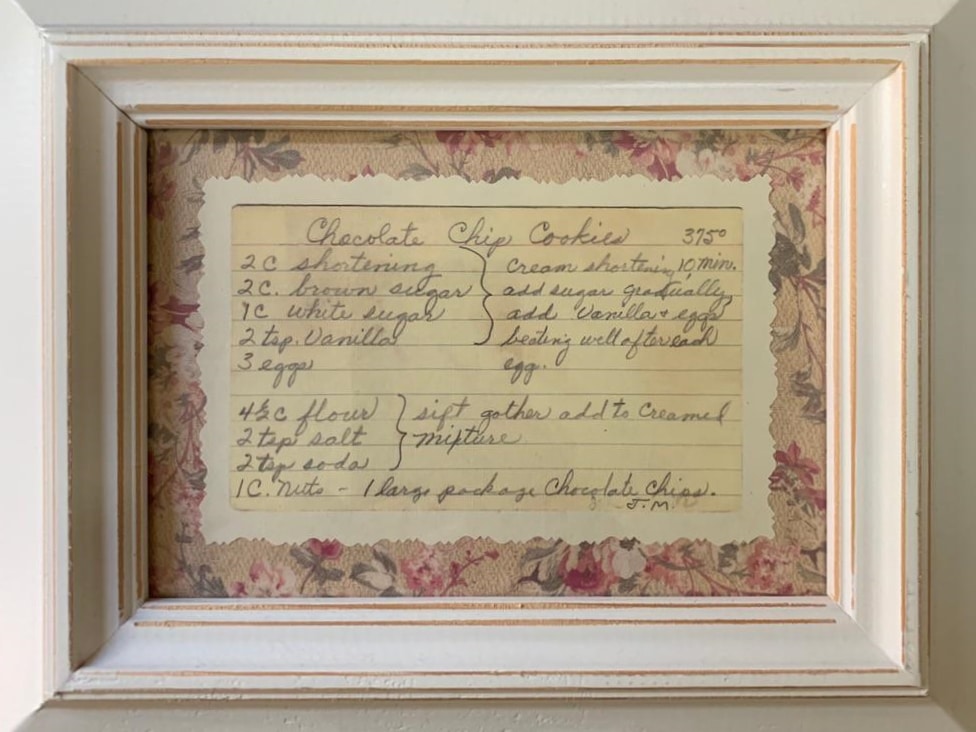 Chocolate Chip Cookies 375°
2 C shortening } cream shortening 10 min.
2 C. brown sugar add sugar gradually
1C white sugar add Vanilla + eggs
2 tsp. Vanilla beating well after each
3 eggs egg.
4½ C flour } sift gother add to Creamed
2 tsp salt mixture
2 tsp soda
1C. Nuts - 1 large package Chocolate Chips.
J.M.